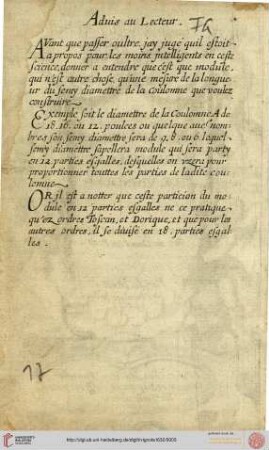 Aduis au Lecteur.
AVant que passer oultre, jay jugé quil estoit
a propos pour les moins jntelligents en ceste
science, donner a entendre que c'est que module,
qui n'est autre chose, qu'une mesure de la longue-
ur du semy diamettre de la coulomne que voulez
construire.
Exemple soit le diamettre de la Coulomne A de
18. 16. ou 12. poulces ou quelque autre nom-
bre son semy diamettre sera de 9. 8. ou 6. lequel
semy diamettre sapellera module qui sera party
en 12 parties esgalles, desquelles on vsera pour
proportionner touttes les parties de ladite cou-
lomne
OR il est a notter que ceste particion du mo-
dule en 12 parties esgalles ne ce pratique
qu'ez ordres Toscan, et Dorique, et que pour les
autres ordres, il se diuise en 18. parties esgal
les.
17
http://digi.ub.uni-heidelberg.de/diglit/vignole1632/0005